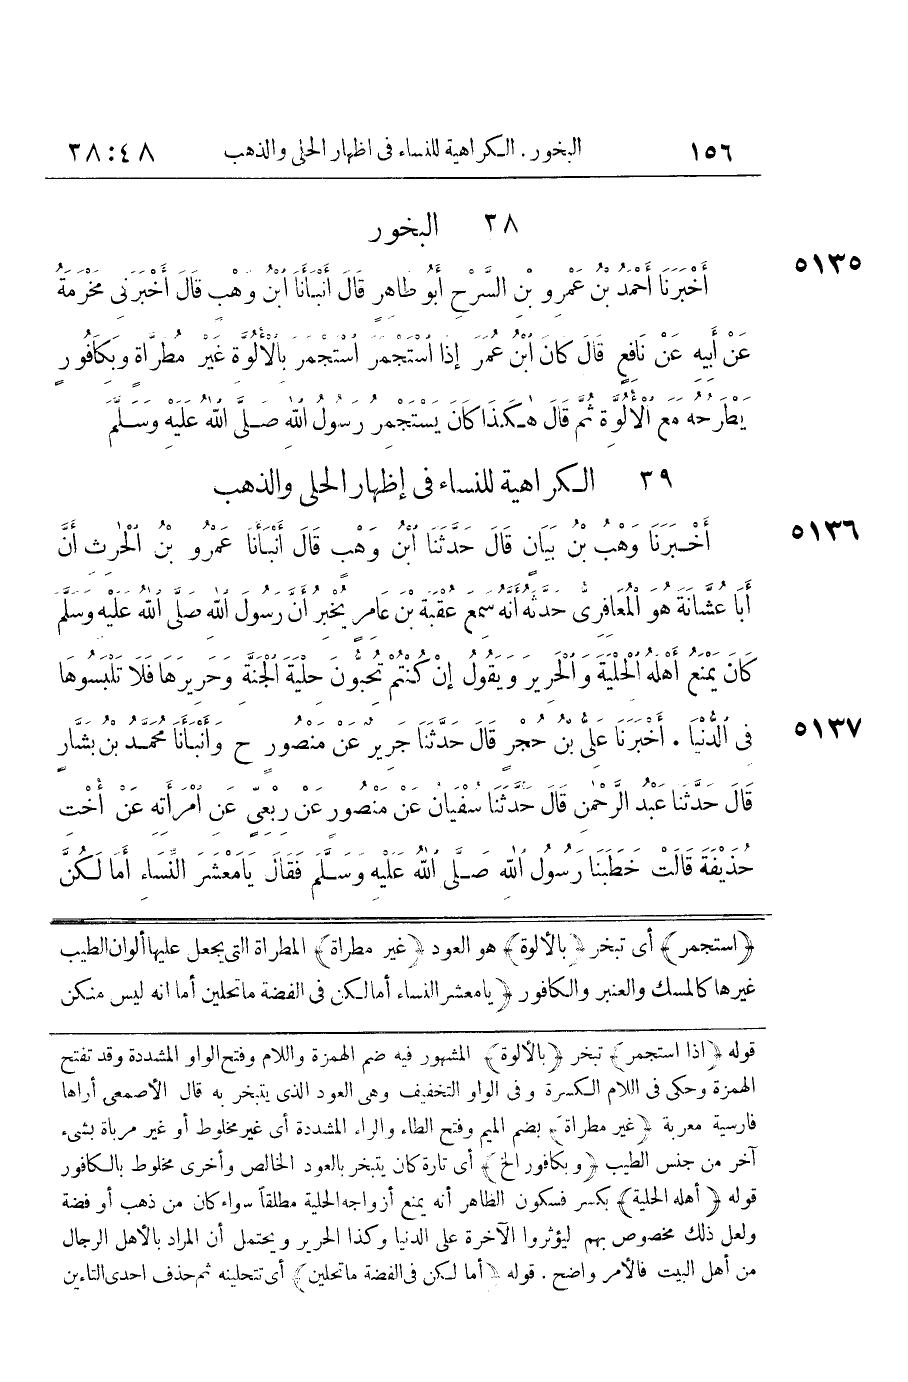 ١٥٦ البخور . الكراهية للنساء فى اظهار الحلى والذهب ٤٨ : ٣٨
٣٨ البخور
٥١٣٥ أَخْبَرَنَا أَحْمَدُ بْنُ عَمْرِو بْنِ السَّرْحِ أَبُو طَاهِرٍ قَالَ أَنْبَأَنَا ابْنُ وَهْبٍ قَالَ أَخْبَرَنِى مَخْرَمَةُ
عَنْ أَبِيهِ عَنْ نَافِعٍ قَالَ كَانَ ابْنُ عُمَرَ إِذَا اسْتَجْمَرَ اسْتَجْمَرَ بِالْأَلُوَّةِ غَيْرَ مُطَرَّاةٍ وَبِكَافُورٍ
يَطْرَحُهُ مَعَ الْأَلُوَّةِ ثُمَّ قَالَ هٰكَذَا كَانَ يَسْتَجْمِرُ رَسُولُ اللهِ صَلَّى اللهُ عَلَيْهِ وَسَلَّمَ
٣٩ الكراهية للنساء فى إظهار الحلى والذهب
٥١٣٦ أَخْبَرَنَا وَهْبُ بْنُ بَيَانٍ قَالَ حَدَّثَنَا ابْنُ وَهْبٍ قَالَ أَنْبَأَنَا عَمْرُو بْنُ الْحٰرِثِ أَنَّ
أَبَا عُشَّانَةَ هُوَ الْمَعَافِرِىُّ حَدَّثَهُ أَنَّهُ سَمِعَ عُقْبَةَ بْنَ عَامِرٍ يُخْبِرُ أَنَّ رَسُولَ اللهِ صَلَّى اللهُ عَلَيْهِ وَسَلَّمَ
كَانَ يَمْنَعُ أَهْلَهُ الْحِلْيَةَ وَالْحَرِيرَ وَيَقُولُ إِنْ كُنْتُمْ تُحِبُّونَ حِلْيَةَ الْجَنَّةِ وَحَرِيرَهَا فَلَا تَلْبَسُوهَا
٥١٣٧ فِى الدُّنْيَا . أَخْبَرَنَا عَلِىُّ بْنُ حُجْرٍ قَالَ حَدَّثَنَا جَرِيرٌ عَنْ مَنْصُورٍ ح وَأَنْبَأَنَا مُحَمَّدُ بْنُ بَشَّارٍ
قَالَ حَدَّثَنَا عَبْدُ الرَّحْمٰنِ قَالَ حَدَّثَنَا سُفْيَانُ عَنْ مَنْصُورٍ عَنْ رِبْعِىٍّ عَنِ امْرَأَتِهِ عَنْ أُخْتِ
حُذَيْفَةَ قَالَتْ خَطَبَنَا رَسُولُ اللهِ صَلَّى اللهُ عَلَيْهِ وَسَلَّمَ فَقَالَ يَا مَعْشَرَ النِّسَاءِ أَمَا لَكُنَّ
﴿استجمر﴾ أى تبخر ﴿بالألوة﴾ هو العود ﴿غير مطراة﴾ المطراة التى يجعل عليها ألوان الطيب
غيرها كالمسك والعنبر والكافور ﴿يامعشر النساء أما لكن فى الفضة ماتحلين أما انه ليس منكن
قوله ﴿اذا استجمر﴾ تبخر ﴿بالألوة﴾ المشهور فيه ضم الهمزة واللام وفتح الواو المشددة وقد تفتح
الهمزة وحكى فى اللام الكسرة وفى الواو التخفيف وهى العود الذى يتبخر به قال الأصمعى أراها
فارسية معربة ﴿غير مطراة﴾ بضم الميم وفتح الطاء والراء المشددة أى غير مخلوط أو غير مرباة بشىء
آخر من جنس الطيب ﴿وبكافور الخ﴾ أى تارة كان يتبخر بالعود الخالص وأخرى مخلوط بالكافور
قوله ﴿أهله الحلية﴾ بكسر فسكون الظاهر أنه يمنع أزواجه الحلية مطلقاً سواء كان من ذهب أو فضة
ولعل ذلك مخصوص بهم ليؤثروا الآخرة على الدنيا وكذا الحرير ويحتمل أن المراد بالأهل الرجال
من أهل البيت فالأمر واضح . قوله ﴿أما لكن فى الفضة ماتحلين﴾ أى تتحلينه ثم حذف احدى التاءين